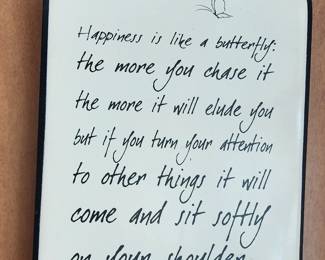 Happiness is like a butterfly:
the more you chase it
the more it will elude you
but if you turn your attention
to other things it will
come and sit softly
on your shoulder